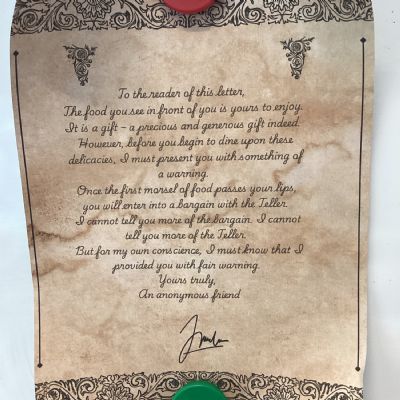 To the reader of this letter,
The food you see in front of you is yours to enjoy.
It is a gift – a precious and generous gift indeed.
However, before you begin to dine upon these
delicacies, I must present you with something of
a warning.
Once the first morsel of food passes your lips,
you will enter into a bargain with the Teller.
I cannot tell you more of the bargain. I cannot
tell you more of the Teller.
But for my own conscience, I must know that I
provided you with fair warning.
Yours truly,
An anonymous friend